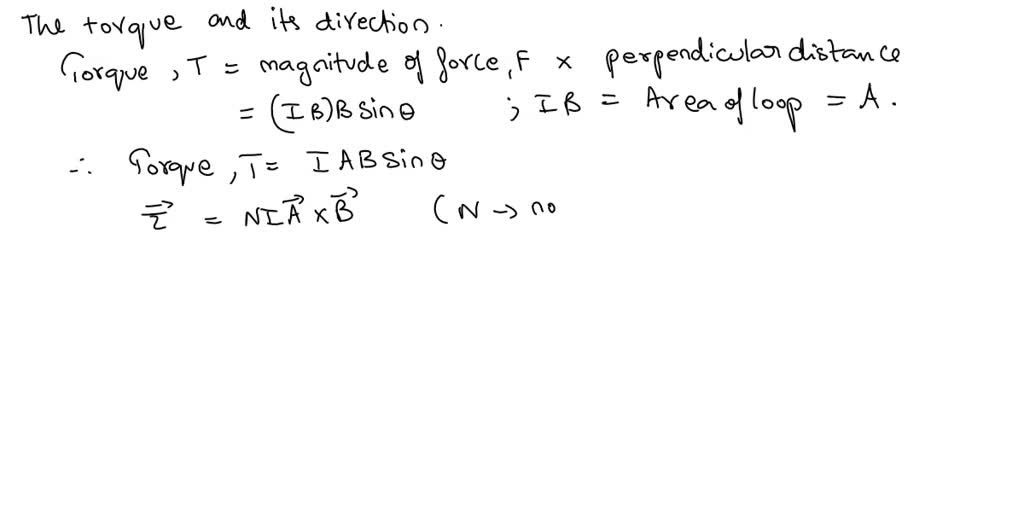 The torque and its direction.
Torque, T = magnitude of force, F × perpendicular distance
= (IB)B sinθ ; IB = Area of loop = A.
∴ Torque, T = IAB sinθ
τ⃗ = NIA⃗ × B⃗ (N → no